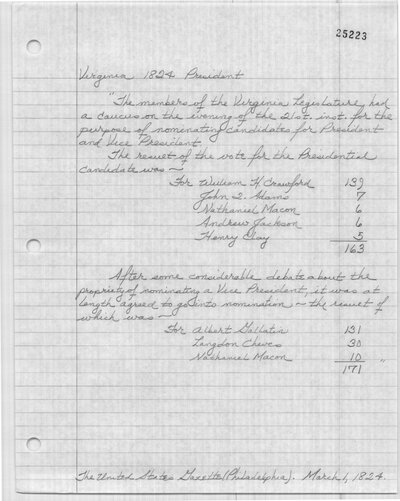 25223
Virginia 1824 President
"The members of the Virginia Legislature, had
a caucus on the evening of the 21st. inst. for the
purpose of nominating candidates for President
and Vice President
The result of the vote for the Presidential
candidate was ~
For William H Crawford 139
John Q. Adams 7
Nathaniel Macon 6
Andrew Jackson 6
Henry Clay 5
163
After some considerable debate about the
propriety of nominating a Vice President, it was at
length agreed to go into nomination ~ the result of
which was ~
For Albert Gallatin 131
Langdon Cheves 30
Nathaniel Macon 10
171 "
The United States Gazette (Philadelphia). March 1, 1824.